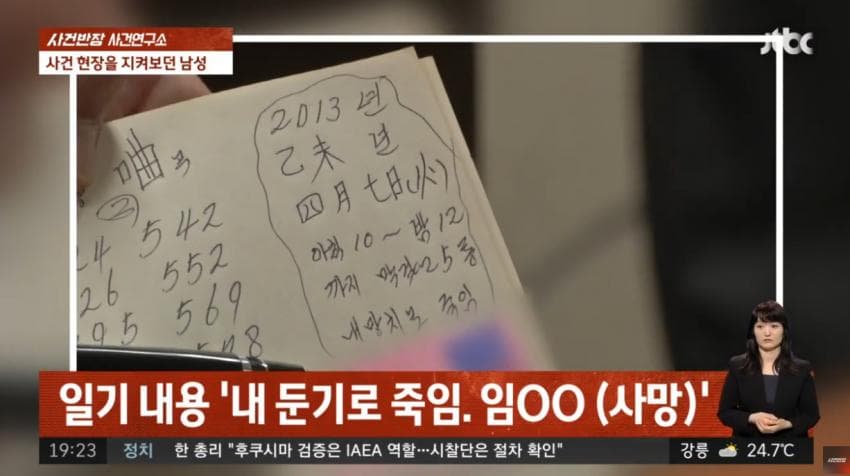 사건반장 사건연구소
사건 현장을 지켜보던 남성
jtbc
2013 년
乙未 년
四月 七日(火)
아침 10 ~ 밤 12
까지 막걸리 5통
내 망치로 죽임
542
26 552
569
일기 내용 '내 둔기로 죽임. 임OO (사망)'
19:23 정치 한 총리 "후쿠시마 검증은 IAEA 역할…시찰단은 절차 확인" 강릉 24.7℃
사건반장